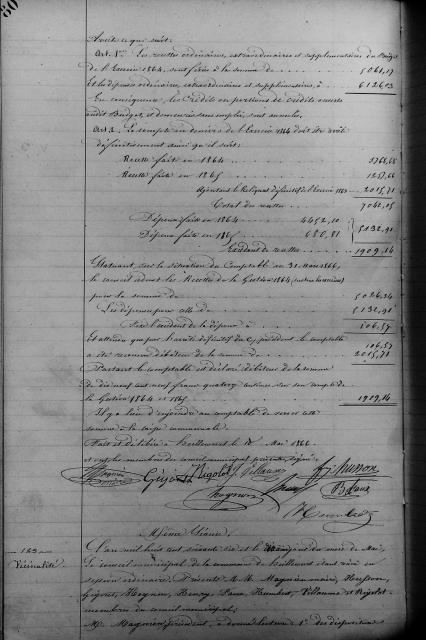 80
Arrête ce qui suit:
Art. 1er Les recettes ordinaires, extraordinaires et supplémentaires du Budget
de l'Exercice 1864, sont fixées à la somme de 5061,17
Et les dépenses ordinaires, extraordinaires et supplémentaires, à 6126,03
En conséquence, les crédits ou portions de crédits ouverts
audit Budget, et demeurés sans emploi, sont annulés.
Art. 2. Le compte en deniers de l'Exercice 1864 doit être arrêté
définitivement ainsi qu'il suit:
Recette faite en 1864
Recette faite en 1865 1257,66
Ajoutant le Reliquat définitif de l'Exercice 1863 2015,71
Total des recettes 7042,05
Dépense faite en 1864 4452,10
Dépense faite en 1865 680,81 5132,91
Excédant de recettes 1909,14
Statuant, sur la situation du Comptable au 31 Mars 1866,
le conseil admet les Recettes de la Gestion 1864
pour la somme de 5026,34
Les dépenses pour celle de 5132,91
Fixe l'excédant de la dépense à 106,57
Et attendu que par l'arrêté définitif du Cpte précédent le comptable 106,57
a été reconnu débiteur de la somme de 2015,71
Partant le comptable est déclaré débiteur de la somme
de dix neuf cent neuf francs quatorze centimes sur son compte de
la Gestion 1864 et 1865 1909,14
Il y a lieu d'enjoindre au comptable de verser cette
somme à la caisse communale.
Fait et délibéré à les Mai 1866
et ont les membres du conseil municipal présents signé.
Nigolot Villaume Husson
Même Séance.
163
Vicinalité.
L'an mil huit cent soixante six et le du mois de Mai,
le conseil municipal de la commune de s'est réuni en
session ordinaire. Présents M.M. Magnien maire, Husson,
Humbert, Villaume et Nigolot
membres du conseil municipal;
M. Magnien président, a donné lecture 1° des dispositions